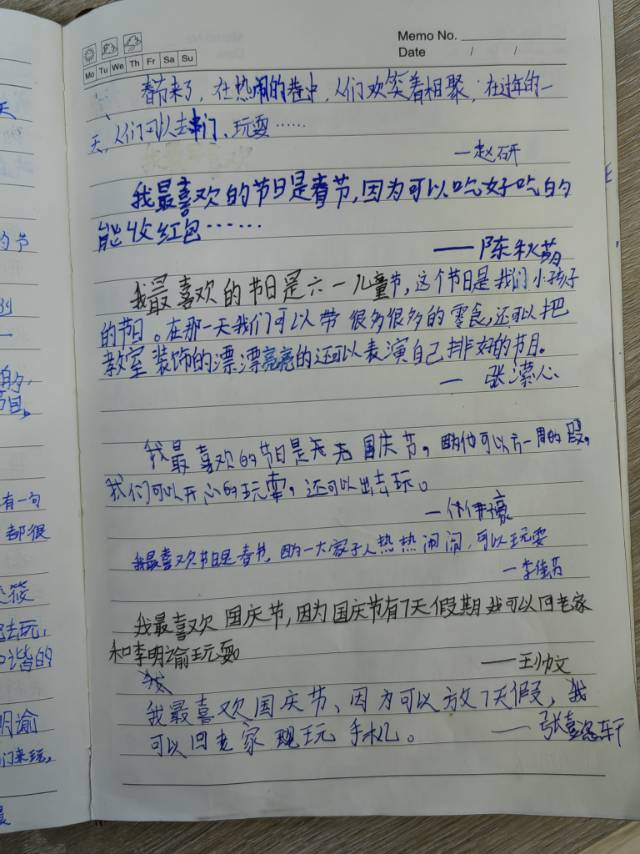 Memo No.
Mo Tu We Th Fr Sa Su
Date / /
春节来了，在热闹的巷中，人们欢笑着相聚，在过年的一
天，人们可以去串门、玩耍……
—赵研
我最喜欢的节日是春节,因为可以吃好吃的
能收红包……
——陈秋
我最喜欢的节日是六一儿童节，这个节日是我们小孩子
的节日。在那一天我们可以带很多很多的零食,还可以把
教室装饰的漂漂亮亮的还可以表演自己排好的节目。
— 张濛心
我最喜欢的节日是国庆节，因为可以放一周的假，
我们可以开心的玩耍，还可以出去玩。
我最喜欢节日是春节，因为一大家子人热热闹闹，可以玩耍
—李佳
我最喜欢国庆节,因为国庆节有7天假期我可以回老家
和李明瑜玩耍。
——王帅文
我
我最喜欢国庆节、因为可以放7天假，我
可以回老家现玩手机。
——张轩
天
的节
别
一
的,
节日,
有一句
都很
去玩,
谐的
明瑜
们来玩,